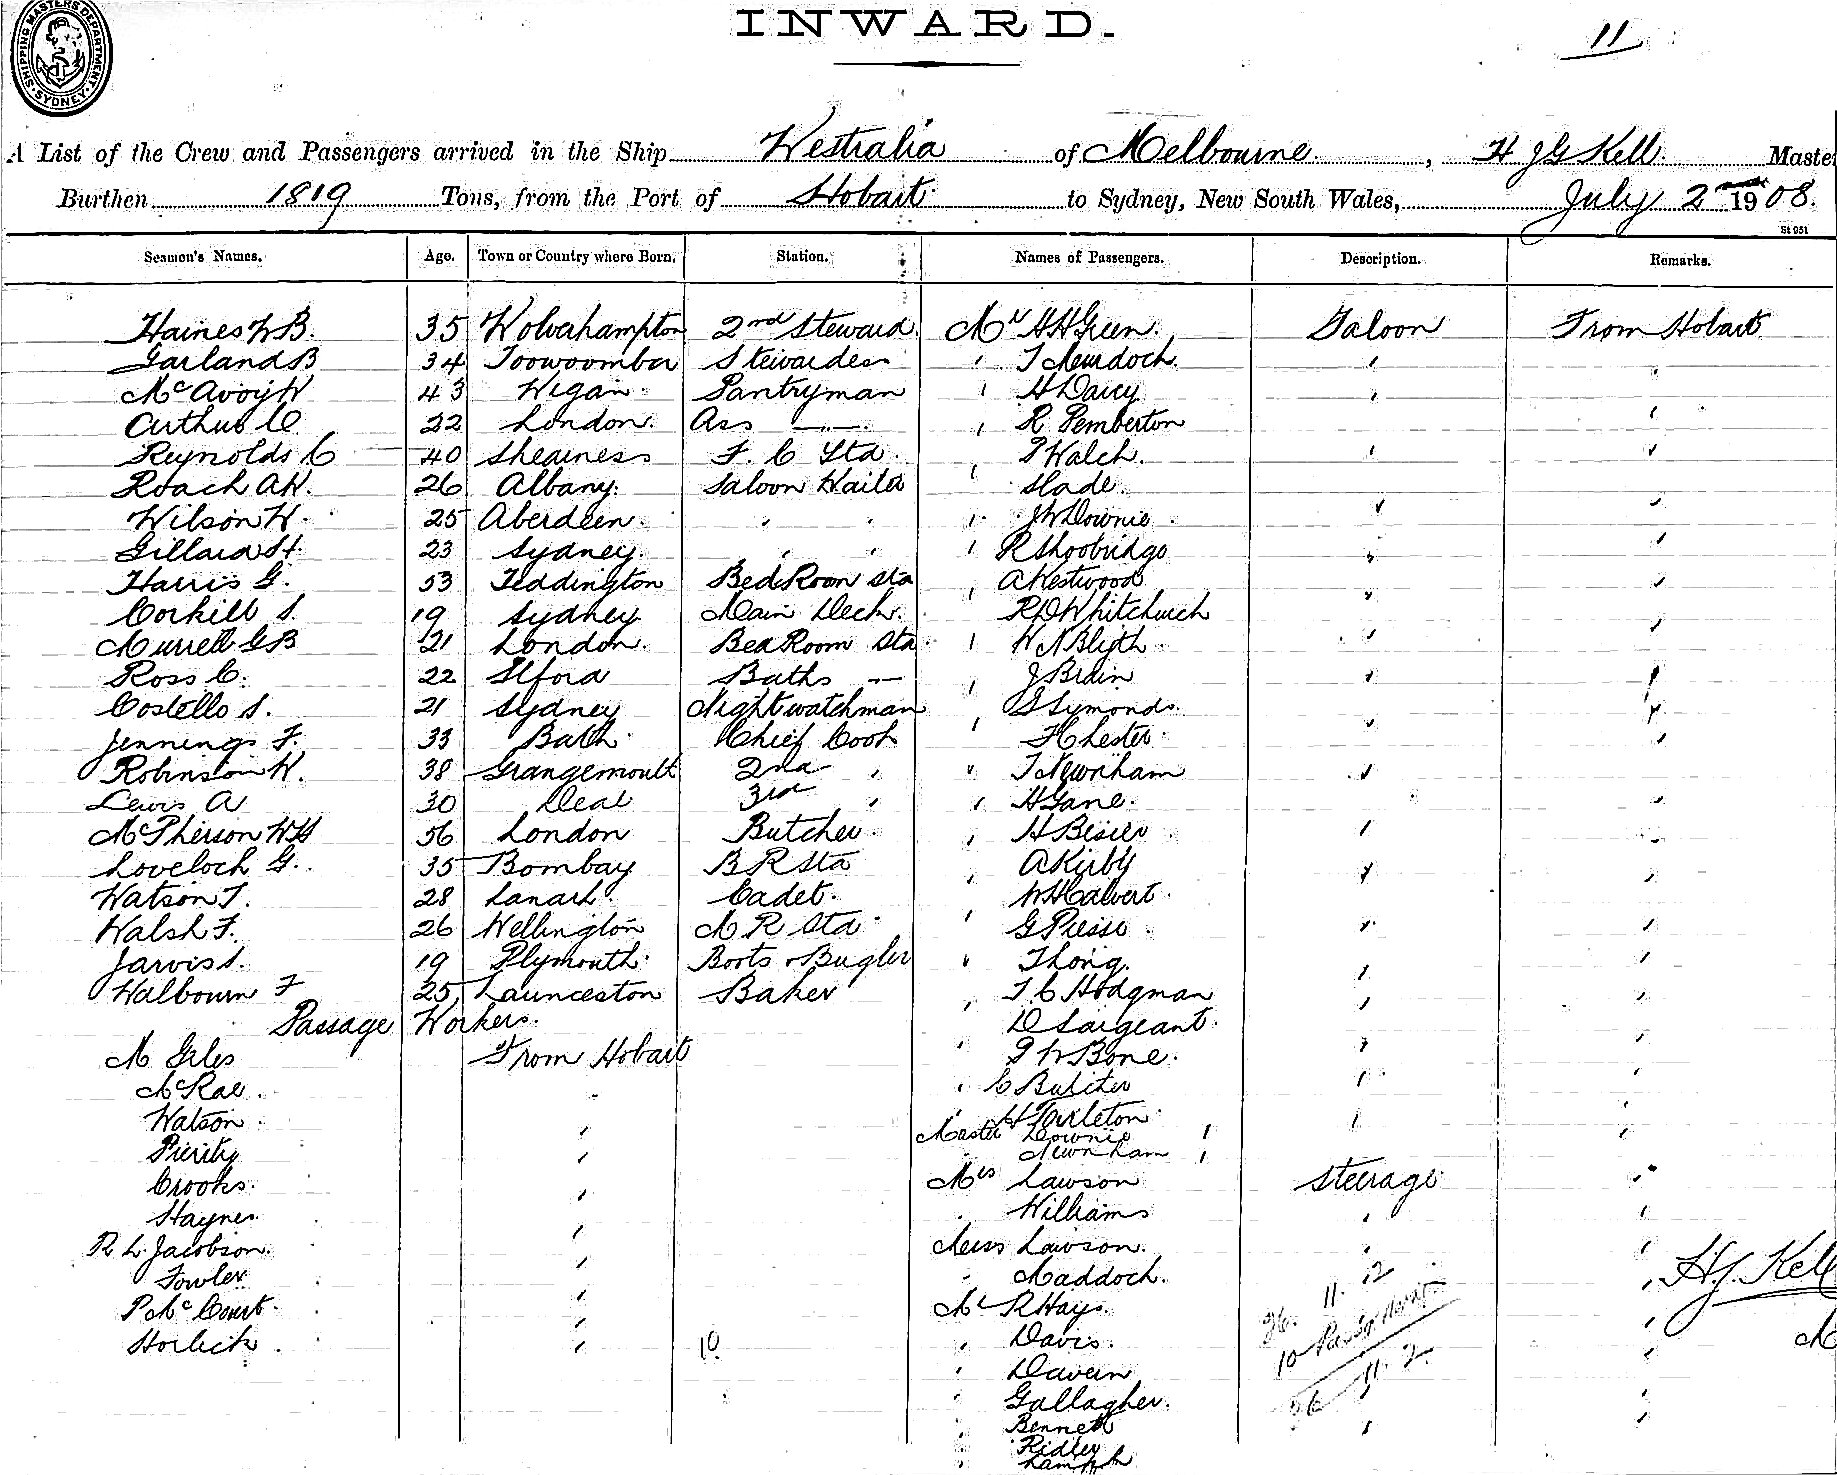 SHIPPING MASTERS DEPARTMENT SYDNEY
INWARD.
11
A List of the Crew and Passengers arrived in the Ship Westralia of Melbourne, H J G Kell Master
Burthen 1819 Tons, from the Port of Hobart to Sydney, New South Wales, July 2nd 1908.
St 951
Seamen's Names. Age. Town or Country where Born. Station. Names of Passengers. Description. Remarks.
Haines W B. 35 Wolverhampton 2nd Steward Mr H H Green. Saloon From Hobart
Garland B 34 Toowoomba Stewardess " T Murdoch " "
McAvoy W 43 Wigan Pantryman " H Darcy " "
Arthur C 22 London Ass — " R Pemberton "
Reynolds C 40 Sheerness F. C Std. P Walch. " "
Roach A W. 26 Albany. Saloon Waiter " Slade.
Wilson W. 25 Aberdeen. " " " J W Downie " "
Gillard H. 23 Sydney. " " " R Shoobridge " "
Harris G. 53 Teddington Bed Room Std " A Westwood "
Corkill S. 19 Sydney Main Deck. R D Whitchurch " "
Murrell G B 21 London. Bed Room Std. " W N Blyth " "
Ross C. 22 Ilford Baths — " J Brain " "
Costello S. 21 Sydney Nightwatchman G Symonds. "
Jennings F. 33 Bath Chief Cook " F Chester " "
Robinson W. 38 Grangemouth 2nd " " T Newnham "
Lewis A 30 Deal 3rd " " H Gane. "
McPherson W H 56 London Butcher " H Bisier " "
Lovelock G. 35 Bombay B R Std " A Kirby " "
Watson T. 28 Lanark. Cadet. " W H Calvert "
Walsh F. 26 Wellington M R Std " G Piesse " "
Jarvis S. 19 Plymouth Boots & Bugler " Thong. " "
Walbourn F 25 Launceston Baker " T C Hodgman " "
Passage Workers. D Sargeant.
M Giles From Hobart " P W Bone. " "
McRae. " " C Butcher " "
Watson " " H Tarleton " "
Master Downie "
Pierity " Newnham "
Crooks. " Mrs Lawson Steerage "
Haynes " " Williams " "
R L. Jacobson. " Miss Lawson. " "
Fowler " " Maddock. " H J. Kell
P McCourt. " Mr R Hays. 11. 12
Horlick. " 10 " Davis. 10 "
" Davern 11. 2.
" Gallagher. 56 "
" Bennett "
" Ridley
" Lamph